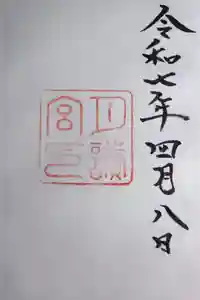 令和七年四月八日